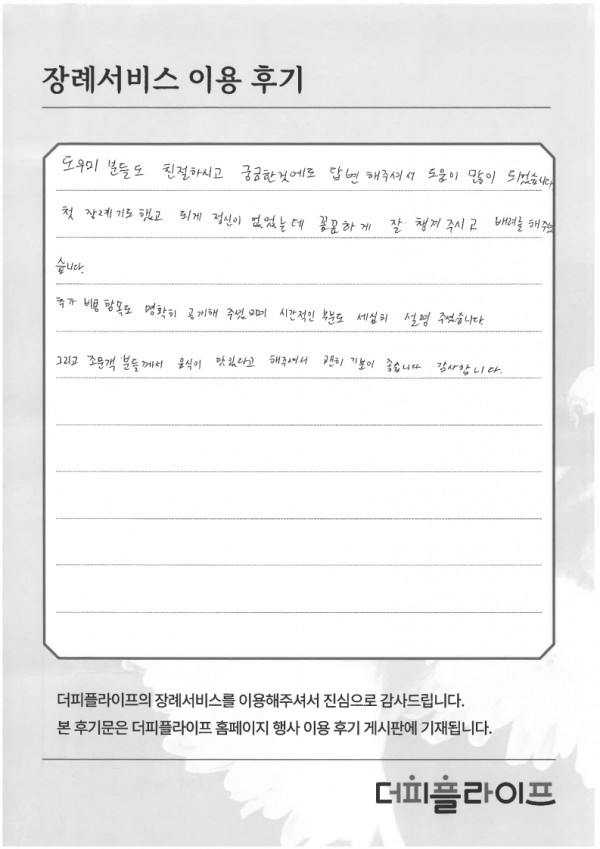 장례서비스 이용 후기
도우미 분들도 친절하시고 궁금한것에도 답변 해주셔서 도움이 많이 되었습니다
첫 장례기도 했고 되게 정신이 없었는데 꼼꼼하게 잘 챙겨 주시고 배려를 해주셨
습니다.
추가 비용 항목도 명확히 공개해 주셨으며 시간적인 부분도 세심히 설명 주셨습니다
그리고 조문객 분들께서 음식이 맛있다고 해주셔서 괜히 기분이 좋습니다 감사합니다.
더피플라이프의 장례서비스를 이용해주셔서 진심으로 감사드립니다.
본 후기문은 더피플라이프 홈페이지 행사 이용 후기 게시판에 기재됩니다.
더피플라이프